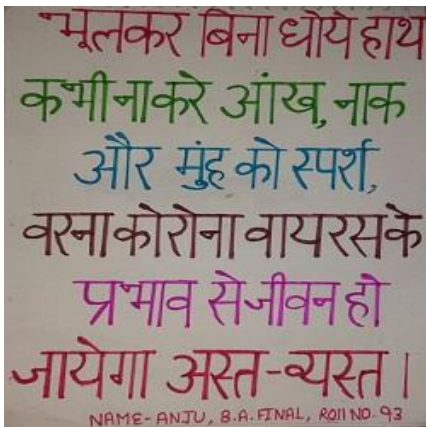 भूलकर बिना धोये हाथ
कभी ना करे आंख, नाक
और मुंह को स्पर्श,
वरना कोरोना वायरस के
प्रभाव से जीवन हो
जायेगा अस्त-व्यस्त।
NAME- ANJU, B.A. FINAL, ROll NO. 93